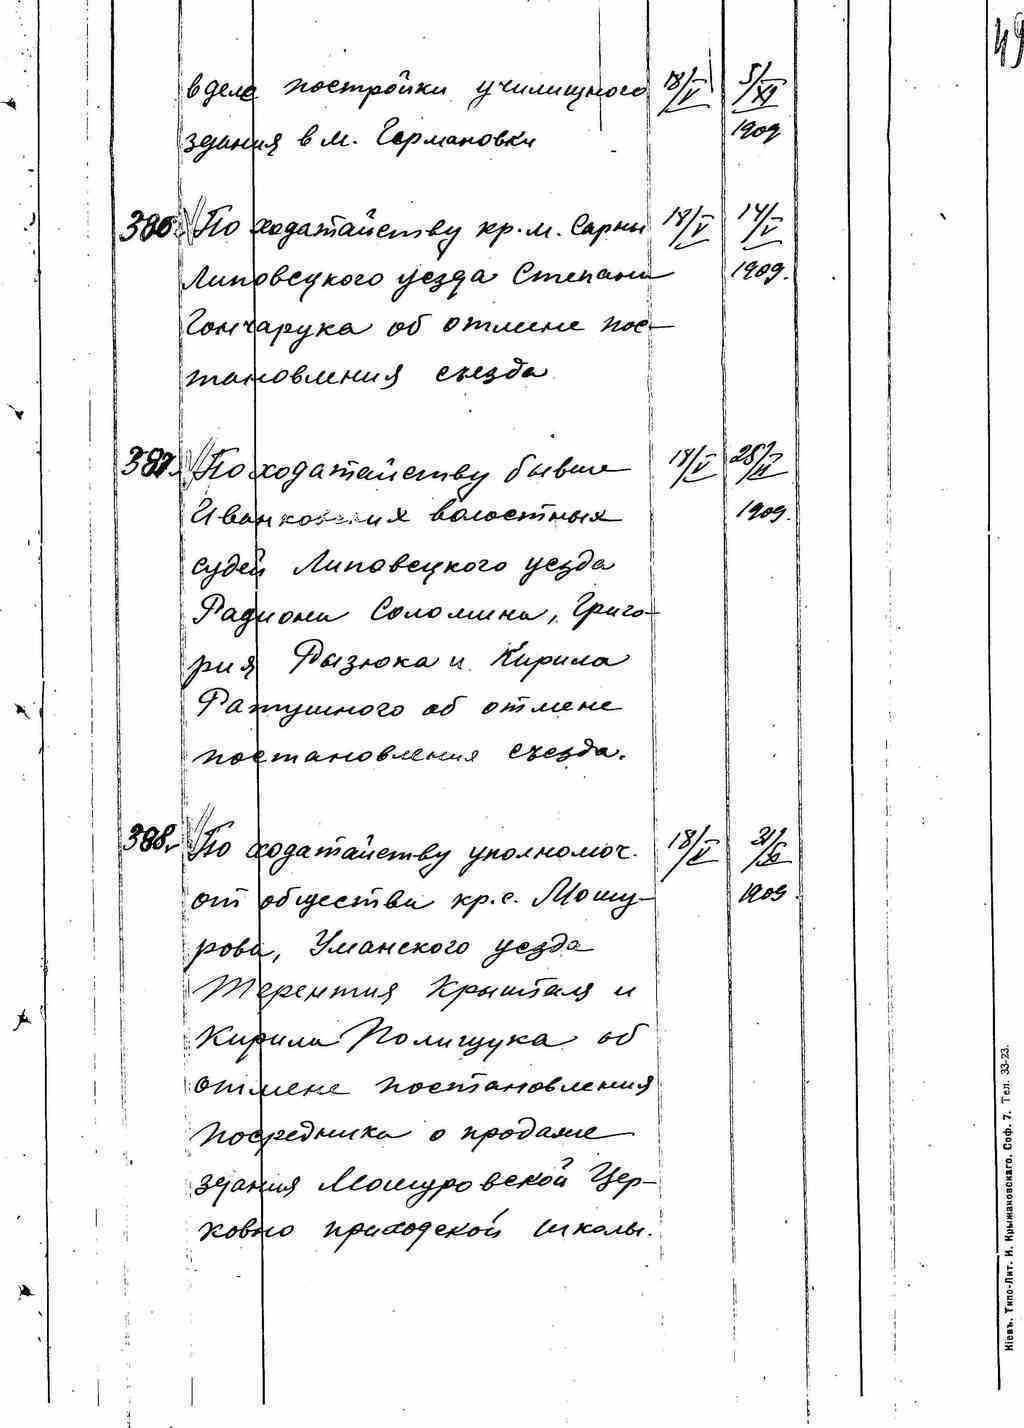 49
в деле постройки училищного 18/V 5/XI
здания в м. Германовки 1909
386. По ходатайству кр. м. Сарны 18/V 14/V
Липовецкого уезда Степана 1909.
Гончарука об отмене пос-
тановления съезда
387. По ходатайству бывше 18/V
Иванковских волостных 1909.
судей Липовецкого уезда
Радиона Соломина, Григо-
рия Рызюка и Кирила
Ратушного об отмене
постановления съезда.
388. По ходатайству уполномоч. 18/V
от общества кр. с. Мошу- 1909.
рова, Уманского уезда
Терентия Крышталя и
Кирила Полищука об
отмене постановления
Посредника о продаже
здания Мошуровской Цер-
ковно приходской школы.
Кіевъ. Типо-Лит. И. Крыжановскаго. Соф. 7. Тел. 33-23.